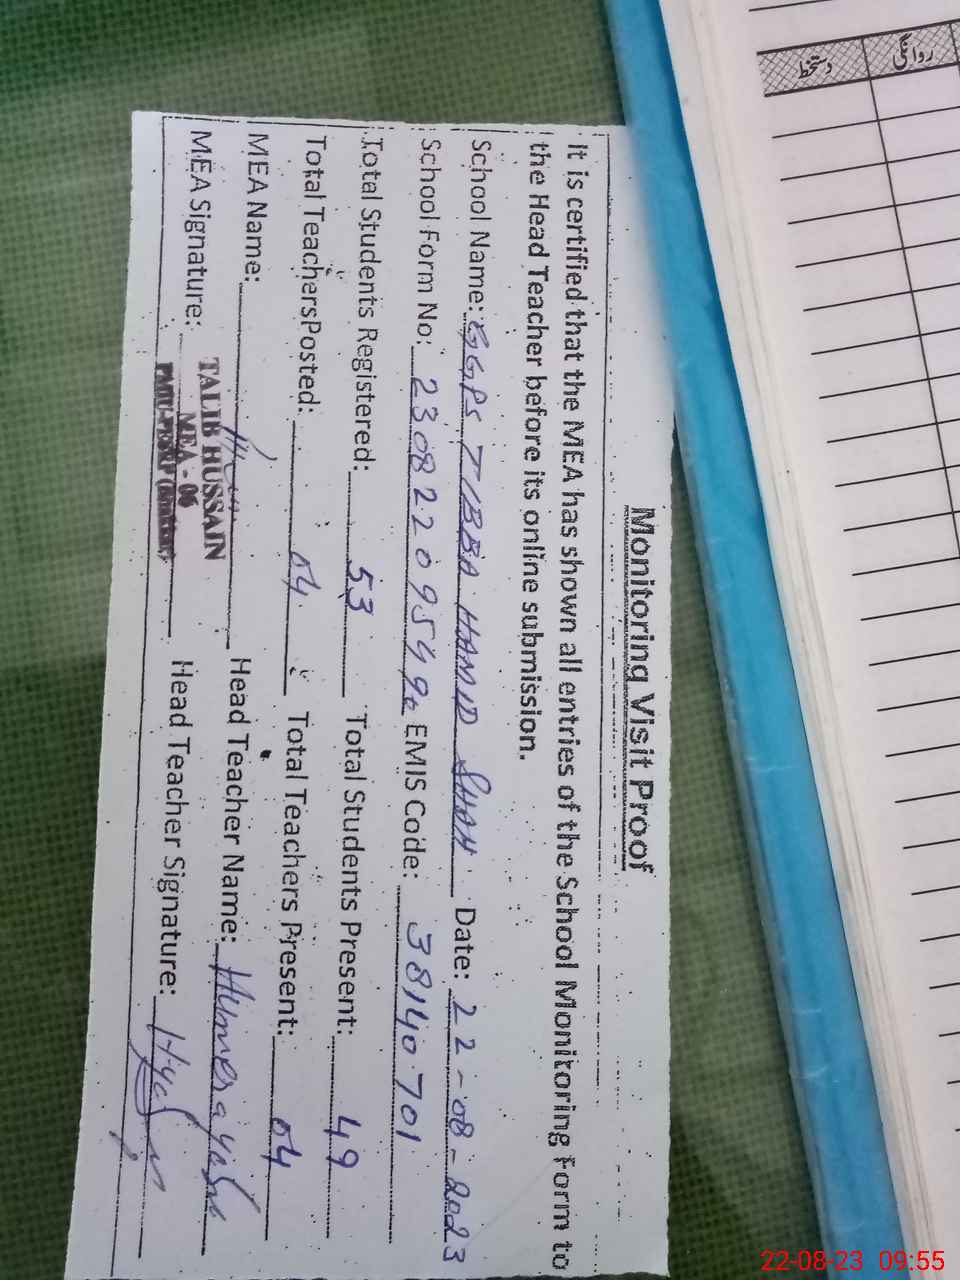 Monitoring Visit Proof
It is certified that the MEA has shown all entries of the School Monitoring Form to
the Head Teacher before its online submission.
School Name: GGPS TIBBA HAMID SHAH Date: 22-08-2023
School Form No: EMIS Code: 38140701
Total Students Registered: 53 Total Students Present: 49
Total Teachers Posted: 04 Total Teachers Present: 04
MEA Name: Head Teacher Name: Humera
MEA Signature: Head Teacher Signature:
TALIB HUSSAIN
MEA - 06
دستخط روانگی
22-08-23 09:55